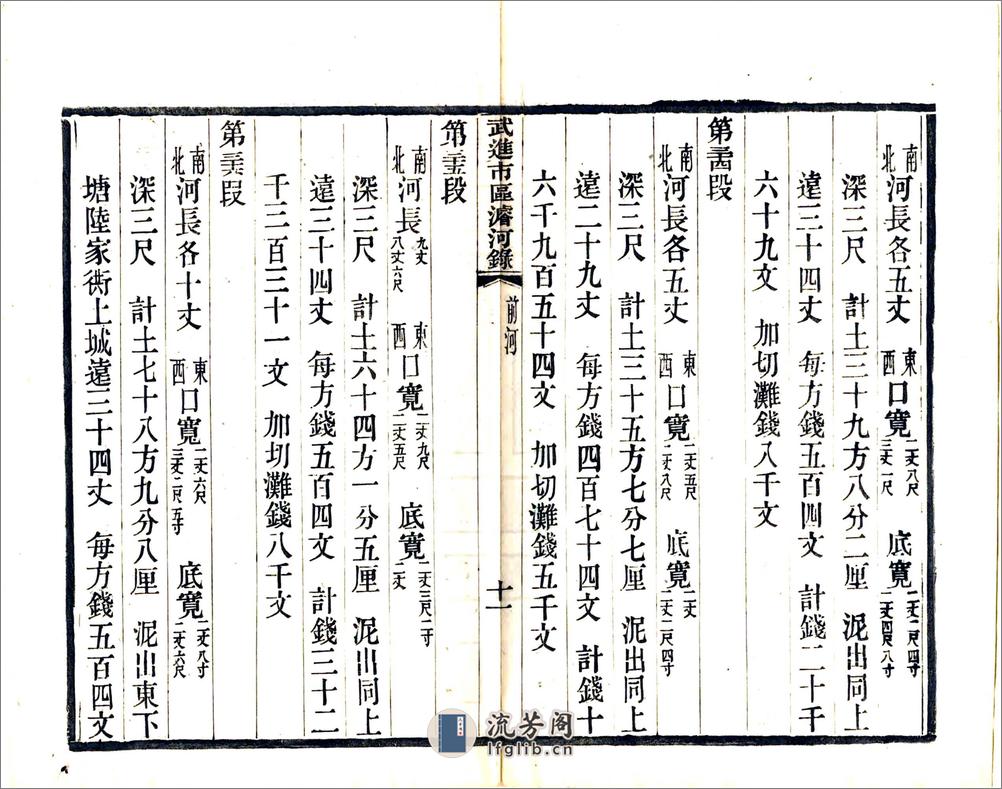 南北河長各五丈 東西口寬二丈八尺三丈一尺 底寬二丈二尺四寸二丈四尺八寸
深三尺 計土三十九方八分二厘 泥出同上
遠三十四丈 每方錢五百四文 計錢二十千
六十九文 加切灘錢八千文
第二十四段
南北河長各五丈 東西口寬二丈五尺二丈八尺 底寬二丈二丈二尺四寸
深三尺 計土三十五方七分七厘 泥出同上
遠二十九丈 每方錢四百七十四文 計錢十
六千九百五十四文 加切灘錢五千文
武進市區濬河錄 前河 十一
第二十五段
南北河長九丈八丈六尺 東西口寬二丈九尺二丈五尺 底寬二丈三尺二寸二丈
深三尺 計土六十四方一分五厘 泥出同上
遠三十四丈 每方錢五百四文 計錢三十二
千三百三十一文 加切灘錢八千文
第二十六段
南北河長各十丈 東西口寬二丈六尺三丈二尺五寸 底寬二丈八寸二丈六尺
深三尺 計土七十八方九分八厘 泥出東下
塘陸家衖上城遠三十四丈 每方錢五百四文
流芳阁
lfglib.cn